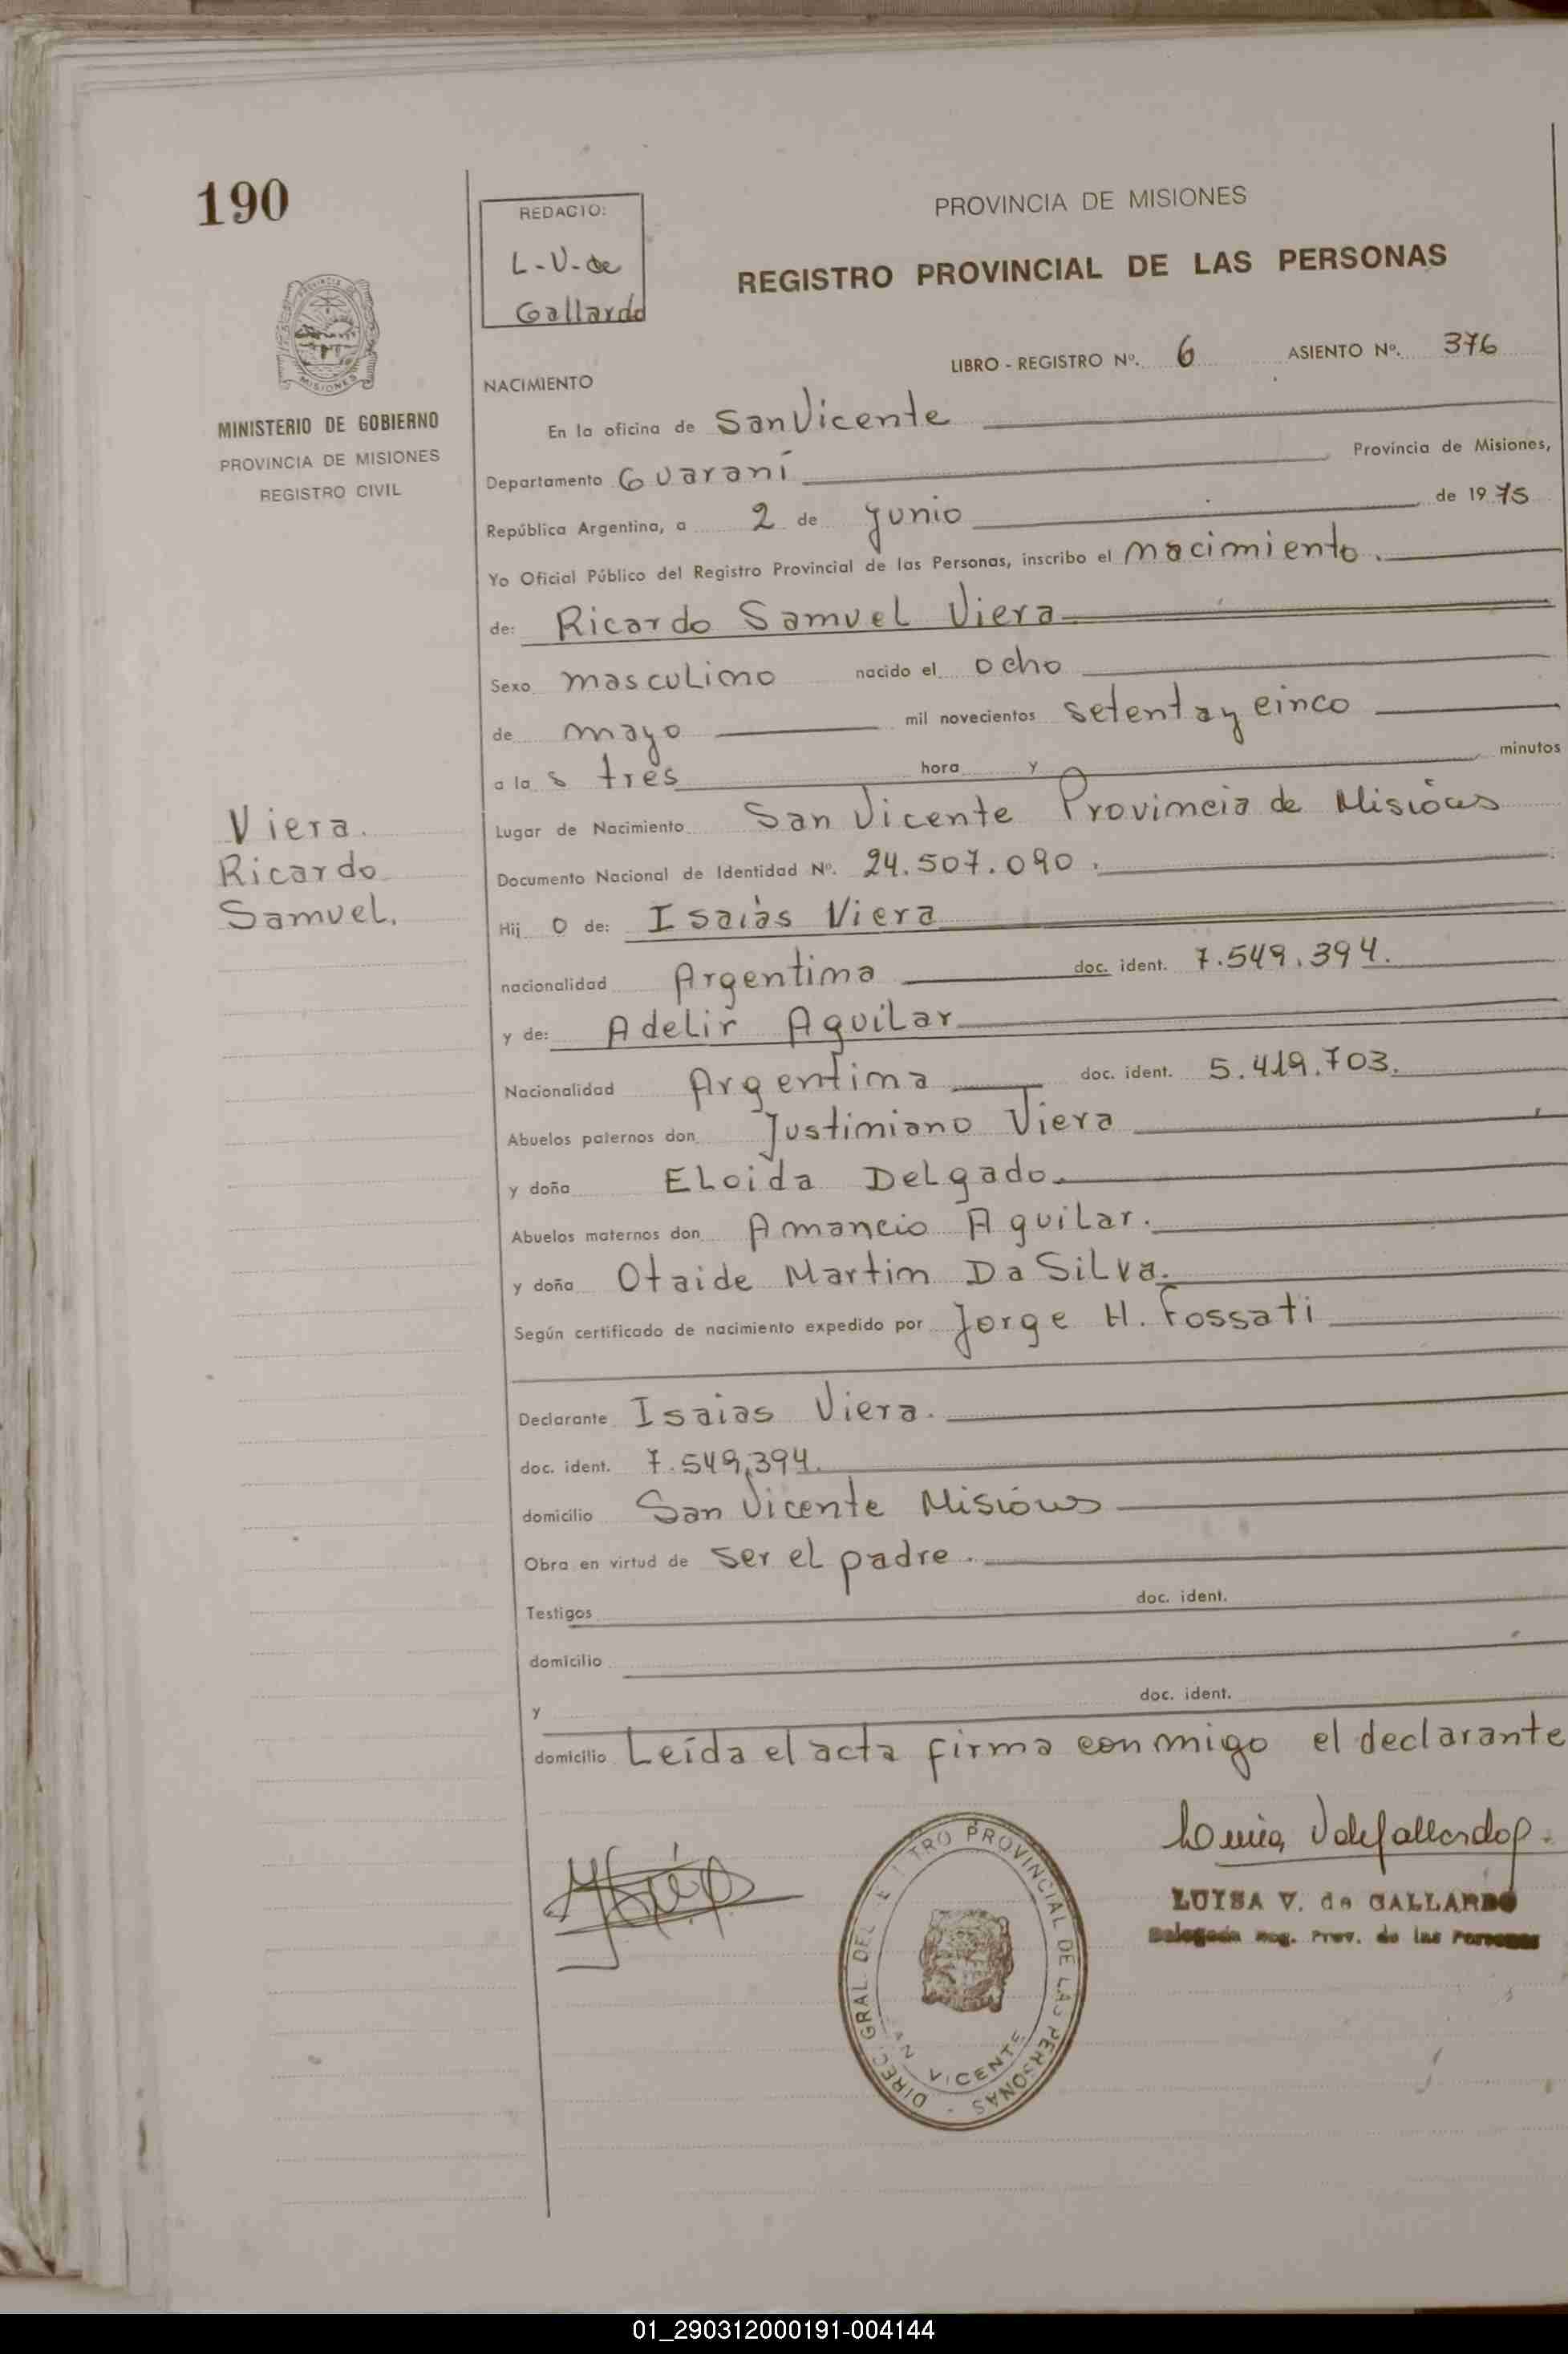 190
REDACTO:
L-V-de
Gallardo
PROVINCIA DE MISIONES
REGISTRO PROVINCIAL DE LAS PERSONAS
LIBRO - REGISTRO Nº. 6 ASIENTO Nº. 376
MISIONES
MINISTERIO DE GOBIERNO
PROVINCIA DE MISIONES
REGISTRO CIVIL
NACIMIENTO
En la oficina de San Vicente
Departamento Guaraní Provincia de Misiones,
República Argentina, a 2 de junio de 1975
Yo Oficial Público del Registro Provincial de las Personas, inscribo el nacimiento.
de: Ricardo Samuel Viera
Sexo masculino nacido el ocho
de mayo mil novecientos setenta y cinco
a las tres hora y minutos
Lugar de Nacimiento San Vicente Provincia de Misiónes
Documento Nacional de Identidad Nº. 24.507.090.
Viera.
Ricardo
Samuel.
Hijo de: Isaías Viera
nacionalidad Argentina doc. ident. 7.549.394.
y de: Adelir Aguilar
Nacionalidad Argentina doc. ident. 5.419.703.
Abuelos paternos don Justiniano Viera
y doña Eloida Delgado.
Abuelos maternos don Amancio Aguilar.
y doña Otaide Martin Da Silva.
Según certificado de nacimiento expedido por Jorge H. Fossati
Declarante Isaias Viera.
doc. ident. 7.549.394.
domicilio San Vicente Misiónes
Obra en virtud de ser el padre.
Testigos doc. ident.
domicilio
y doc. ident.
domicilio Leída el acta firma conmigo el declarante
Luisa V de Gallardo
LUISA V. de GALLARDO
Delegada Reg. Prov. de las Personas
DIREC. GRAL. DEL E I TRO PROVINCIAL DE LAS PERSONAS -
SAN VICENTE
01_290312000191-004144